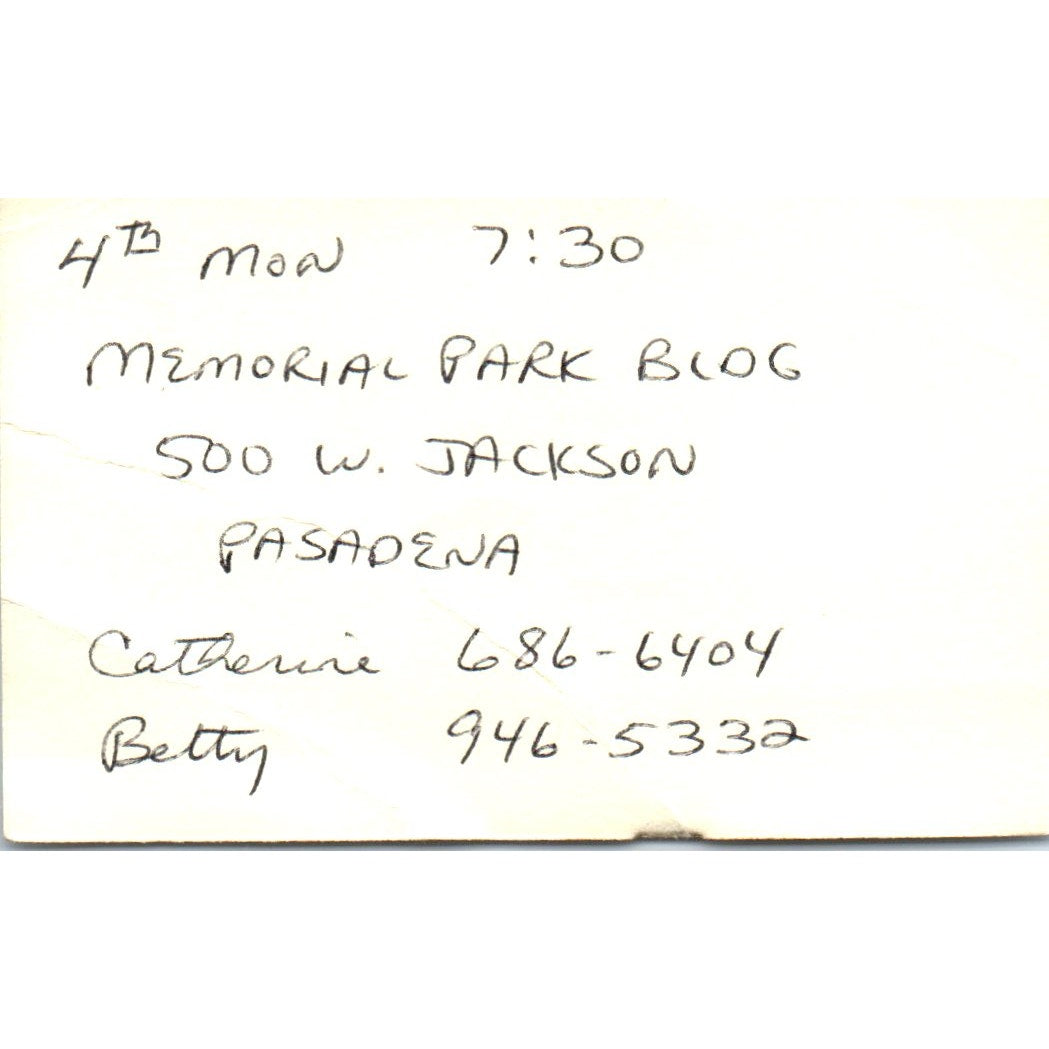 4th MON 7:30
MEMORIAL PARK BLDG
500 W. JACKSON
PASADENA
Catherine 686-6404
Betty 946-5332